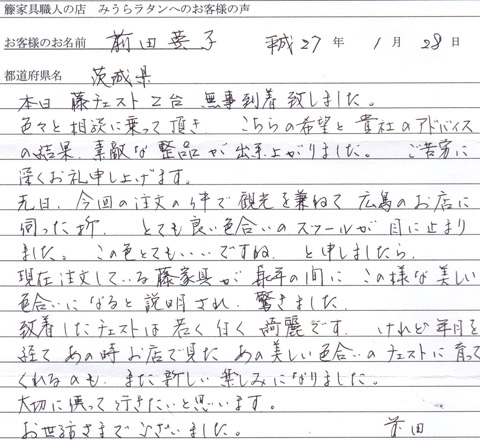 籐家具職人の店 みうらラタンへのお客様の声
お客様のお名前 前田 葉子 平成27年 1月 28日
都道府県名 茨城県
本日 藤チェスト2台 無事到着致しました。
色々と相談に乗って頂き、こちらの希望と貴社のアドバイス
の結果、素敵な整品が出来上がりました。ご苦労に
深くお礼申し上げます。
先日、今回の注文の件で観光を兼ねて広島のお店に
伺った折、とても良い色合いのスツールが目に止まり
ました。この色とてもいいですね、と申しましたら、
現在注文している藤家具が 長年の間に この様な美しい
色合いになると説明され、驚きました。
到着したチェストは若く白く綺麗です。けれど年月を
経て あの時お店で見た あの美しい色合いのチェストに育って
くれるのも、また新しい楽しみになりました。
大切に使って行きたいと思います。
お世話さまでございました。 前田